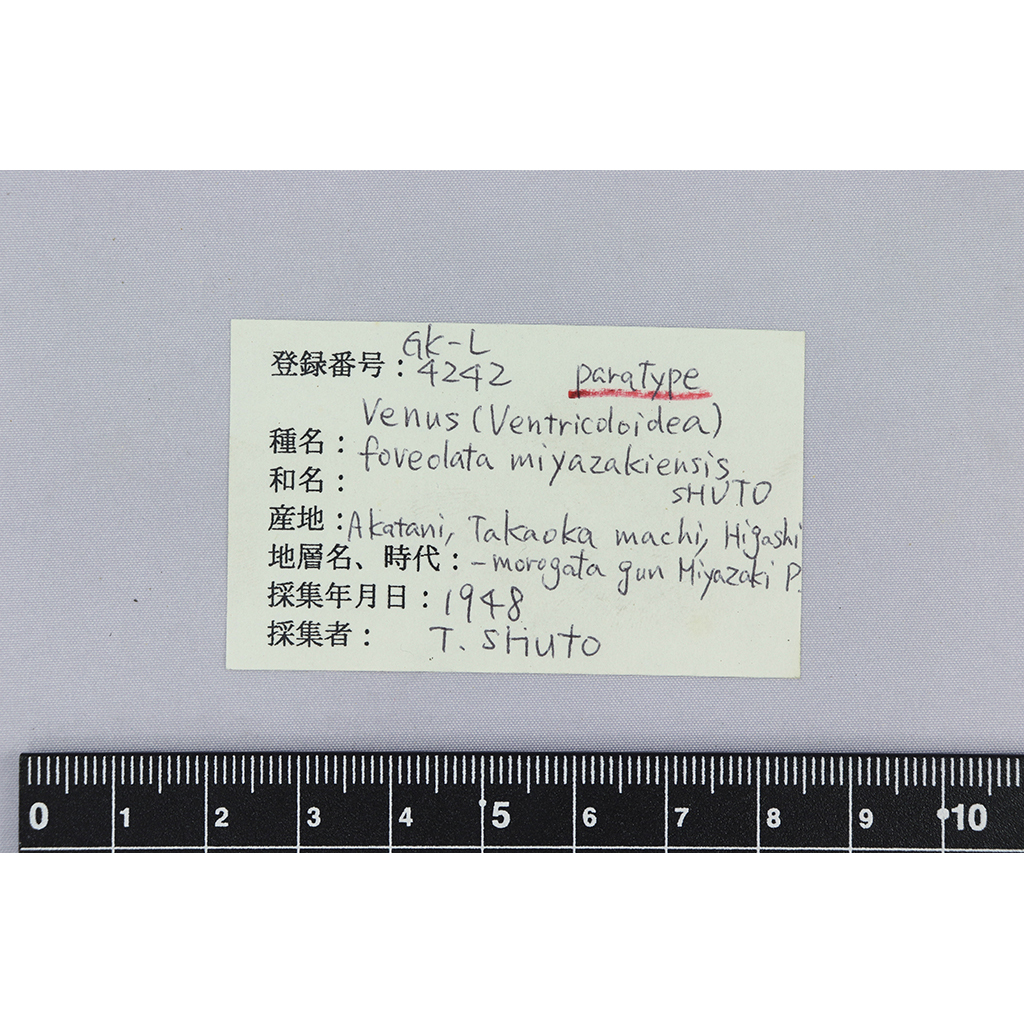 GK-L
登録番号：4242 paratype
Venus (Ventricoloidea)
種名：foveolata miyazakiensis
和名： SHUTO
産地：Akatani, Takaoka machi, Higashi
地層名、時代：-morogata gun Miyazaki P.
採集年月日：1948
採集者： T. SHUTO
0 1 2 3 4 5 6 7 8 9 10